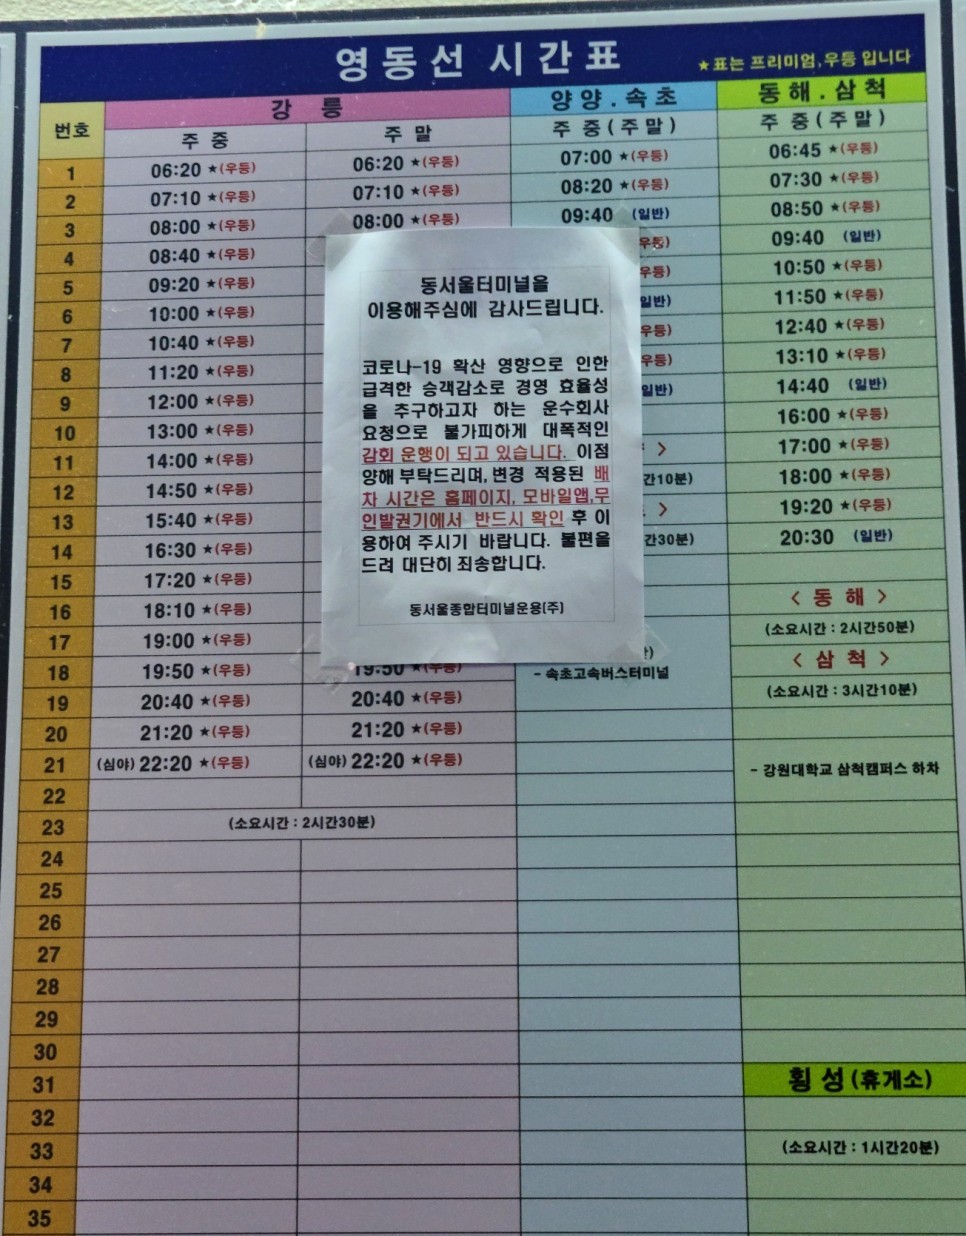 영동선 시간표
★표는 프리미엄,우등 입니다
번호 강 릉 양양.속초 동해.삼척
주 중 주 말 주 중(주말) 주 중(주말)
1 06:20 ★(우등) 06:20 ★(우등) 07:00 ★(우등) 06:45 ★(우등)
2 07:10 ★(우등) 07:10 ★(우등) 08:20 ★(우등) 07:30 ★(우등)
3 08:00 ★(우등) 08:00 ★(우등) 09:40 (일반) 08:50 ★(우등)
4 08:40 ★(우등) 우등) 09:40 (일반)
5 09:20 ★(우등) 우등) 10:50 ★(우등)
6 10:00 ★(우등) 일반) 11:50 ★(우등)
7 10:40 ★(우등) 우등) 12:40 ★(우등)
8 11:20 ★(우등) 우등) 13:10 ★(우등)
9 12:00 ★(우등) 일반) 14:40 (일반)
10 13:00 ★(우등) 16:00 ★(우등)
11 14:00 ★(우등) > 17:00 ★(우등)
12 14:50 ★(우등) 간10분) 18:00 ★(우등)
13 15:40 ★(우등) > 19:20 ★(우등)
14 16:30 ★(우등) 간30분) 20:30 (일반)
15 17:20 ★(우등)
16 18:10 ★(우등) < 동 해 >
17 19:00 ★(우등) (소요시간 : 2시간50분)
18 19:50 ★(우등) 19:50 ★(우등) - 속초고속버스터미널 < 삼 척 >
19 20:40 ★(우등) 20:40 ★(우등) (소요시간 : 3시간10분)
20 21:20 ★(우등) 21:20 ★(우등)
21 (심야) 22:20 ★(우등) (심야) 22:20 ★(우등) - 강원대학교 삼척캠퍼스 하차
22
23 (소요시간 : 2시간30분)
24
25
26
27
28
29
30
31 횡성(휴게소)
32
33 (소요시간 : 1시간20분)
34
35
동서울터미널을
이용해주심에 감사드립니다.
코로나-19 확산 영향으로 인한
급격한 승객감소로 경영 효율성
을 추구하고자 하는 운수회사
요청으로 불가피하게 대폭적인
감회 운행이 되고 있습니다. 이점
양해 부탁드리며, 변경 적용된 배
차 시간은 홈페이지, 모바일앱,무
인발권기에서 반드시 확인 후 이
용하여 주시기 바랍니다. 불편을
드려 대단히 죄송합니다.
동서울종합터미널운용(주)